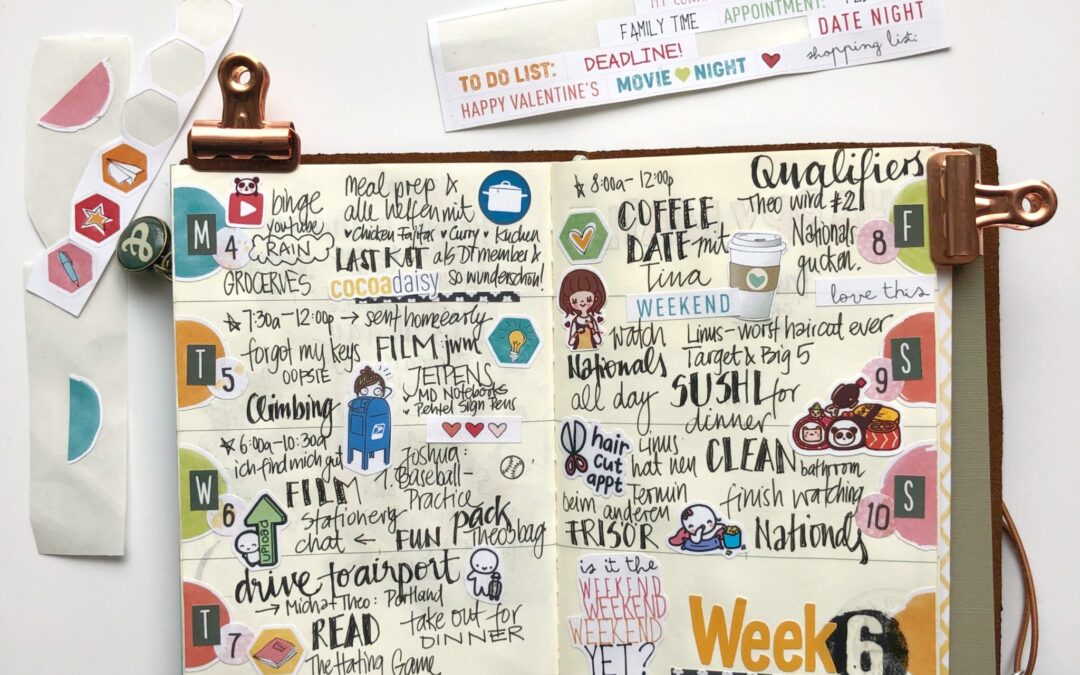 FAMILY TIME
APPOINTMENT:
DATE NIGHT
DEADLINE!
TO DO LIST:
MOVIE NIGHT
shopping list:
HAPPY VALENTINE'S
M
4
binge
youtube
RAIN
GROCERIES
meal prep &
alle helfen mit
Chicken Fajitas Curry Kuchen
LAST KIT als DT member &
so wunderschön!
cocoadaisy
T
5
7:30a-12:00p → sent home early
forgot my keys
OOPSIE
FILM jwml
JETPENS
MD Notebooks
Pentel Sign Pens
Climbing
W
6
6:00a-10:30a
ich find mich gut
FILM
stationery
chat ← FUN
UPLOAD
Joshua:
1. Baseball-
Practice
pack
Theo's bag
T
7
drive to airport
→ Micha & Theo: Portland
READ
The Hating Game
take out for
DINNER
8:00a-12:00p
COFFEE
DATE mit
Tina
WEEKEND
Qualifiers
Theo wird #2!
Nationals
gucken.
love this
8
F
watch
Nationals
all day
Linus-worst haircut ever
Target & Big 5
SUSHI for
dinner
9
S
hair
cut
appt
Linus
hat neu
Termin
beim anderen
FRISÖR
CLEAN bathroom
finish watching
Nationals
10
S
is it the
WEEKEND
WEEKEND
WEEKEND
YET?
Week 6